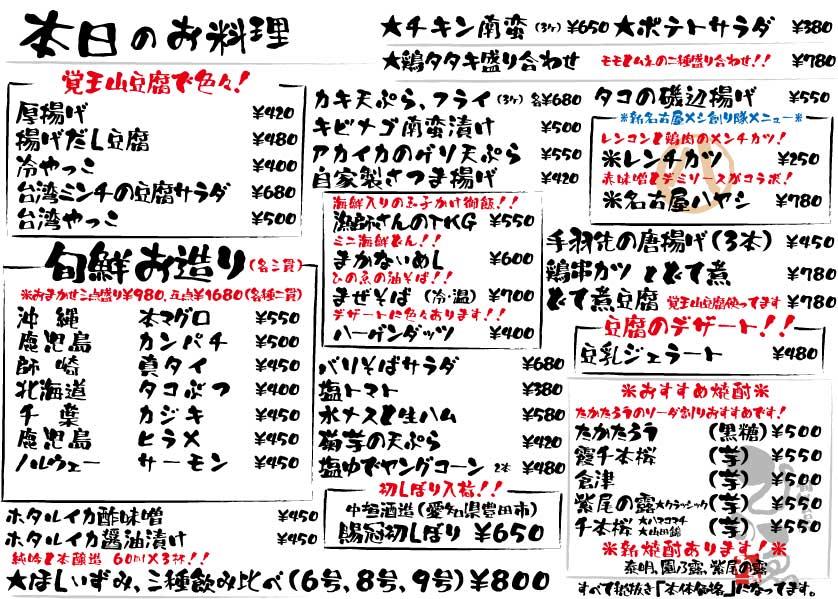 本日のお料理
★チキン南蛮(3ヶ)¥650 ★ポテトサラダ ¥380
★鶏タタキ盛り合わせ モモとムネの二種盛り合わせ!! ¥780
覚王山豆腐で色々!
厚揚げ ¥420
揚げだし豆腐 ¥480
冷やっこ ¥400
台湾ミンチの豆腐サラダ ¥680
台湾やっこ ¥500
旬鮮お造り(各二貫)
※おまかせ三点盛り¥980、五点¥1680(各種二貫)
沖縄 本マグロ ¥550
鹿児島 カンパチ ¥500
師崎 真タイ ¥450
北海道 タコぶつ ¥400
千葉 カジキ ¥450
鹿児島 ヒラメ ¥450
ノルウェー サーモン ¥450
ホタルイカ酢味噌 ¥450
ホタルイカ醤油漬け ¥450
純吟と本醸造 60ml×3杯!!
★ほしいずみ、三種飲み比べ(6号、8号、9号)¥800
カキ天ぷら、フライ(3ヶ)各¥680
キビナゴ南蛮漬け ¥500
アカイカのゲソ天ぷら ¥550
自家製さつま揚げ ¥420
海鮮入りの玉子かけ御飯!!
漁師さんのTKG ¥550
ミニ海鮮どん!!
まかないめし ¥600
ひの魚の油そば!!
まぜそば(冷・温) ¥700
デザートに色々あります!!
ハーゲンダッツ ¥400
パリそばサラダ ¥680
塩トマト ¥380
水ナスと生ハム ¥580
菊芋の天ぷら ¥420
塩ゆでヤングコーン 2本 ¥480
初しぼり入荷!!
中垣酒造(愛知県豊田市)
賜冠初しぼり ¥650
タコの磯辺揚げ ¥550
※新名古屋メシ創り隊メニュー※
レンコンと鶏肉のメンチカツ!
※レンチカツ ¥250
赤味噌とデミソースがコラボ!
※名古屋ハヤシ ¥780
手羽先の唐揚げ(3本) ¥450
鶏串カツ とどて煮 ¥780
どて煮豆腐 覚王山豆腐使ってます ¥780
豆腐のデザート!!
豆乳ジェラート ¥480
※おすすめ焼酎※
たかたろうのソーダ割りおすすめです!
たかたろう (黒糖) ¥500
霞千本桜 (芋) ¥500
倉津 (芋) ¥500
紫尾の露★クラッシック(芋) ¥550
千本桜★ハマコマチ★山田錦(芋) ¥550
※新焼酎あります!※
泰明、園乃露、紫尾の露
すべて税抜き「本体価格」になってます。